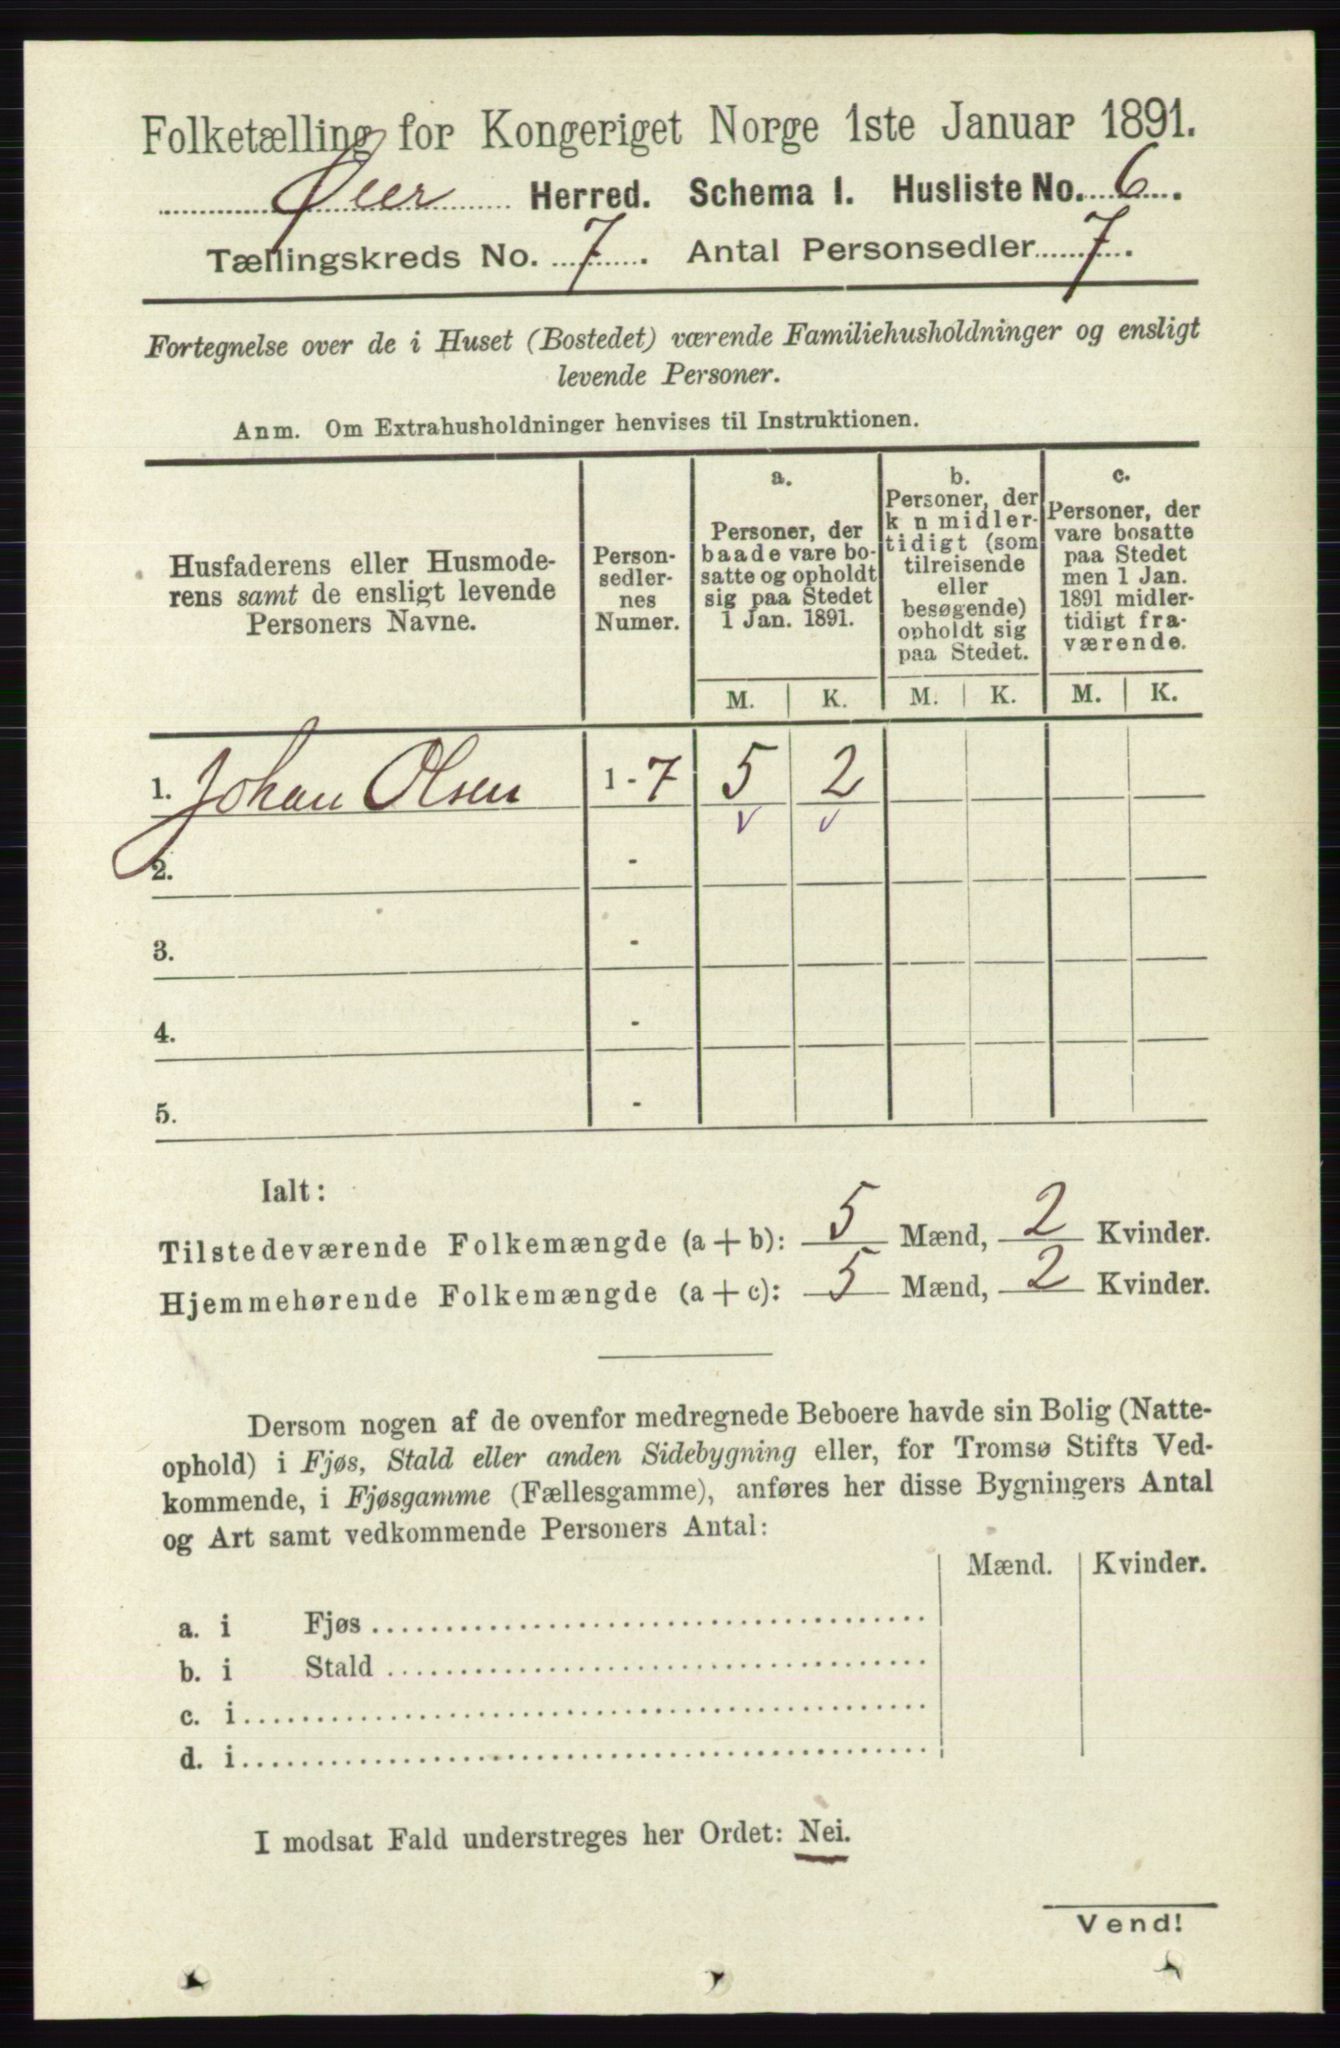 Folketælling for Kongeriget Norge 1ste Januar 1891.
Øier Herred. Schema I. Husliste No. 6.
Tællingskreds No. 7. Antal Personsedler 7.
Fortegnelse over de i Huset (Bostedet) værende Familiehusholdninger og ensligt
levende Personer.
Anm. Om Extrahusholdninger henvises til Instruktionen.
Husfaderens eller Husmode-
rens samt de ensligt levende
Personers Navne.
Person-
sedler-
nes
Numer.
a.
Personer, der
baade vare bo-
satte og opholdt
sig paa Stedet
1 Jan. 1891.
b.
Personer, der
k n midler-
tidigt (som
tilreisende
eller
besøgende)
opholdt sig
paa Stedet.
c.
Personer, der
vare bosatte
paa Stedet
men 1 Jan.
1891 midler-
tidigt fra-
værende.
M. K. M. K. M. K.
1. Johan Olsen 1-7 5 2
2. -
3. -
4. -
5. -
Ialt:
Tilstedeværende Folkemængde (a+b): 5 Mænd, 2 Kvinder.
Hjemmehørende Folkemængde (a+c): 5 Mænd, 2 Kvinder.
Dersom nogen af de ovenfor medregnede Beboere havde sin Bolig (Natte-
ophold) i Fjøs, Stald eller anden Sidebygning eller, for Tromsø Stifts Ved-
kommende, i Fjøsgamme (Fællesgamme), anføres her disse Bygningers Antal
og Art samt vedkommende Personers Antal:
Mænd. Kvinder.
a. i Fjøs
b. i Stald
c. i
d. i
I modsat Fald understreges her Ordet: Nei.
Vend!